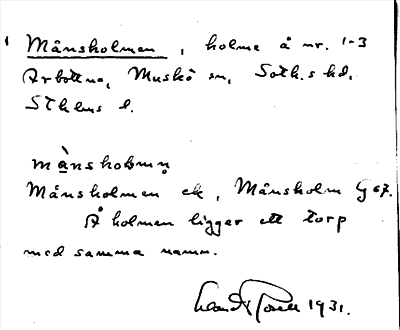 Månsholmen, holme å nr. 1-3
Arbottna, Muskö sn, Soth.s hd,
Sthlms l.
månshoɫmn̥
Månsholmen ek, Månsholm G 67.
Å holmen ligger ett torp
med samma namn.
1931.